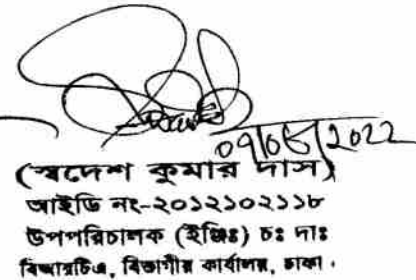 ০৭/০৬/2022
(স্বদেশ কুমার দাস)
আইডি নং-২০১২১০২১১৮
উপপরিচালক (ইঞ্জিঃ) চঃ দাঃ
বিআরটিএ, বিভাগীয় কার্যালয়, ঢাকা।